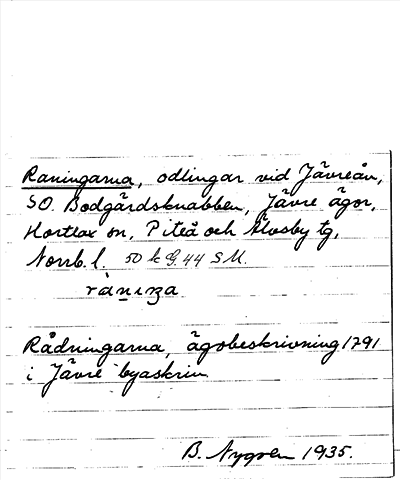 Raningarna, odlingar vid Jävreån,
SO. Bodgårdsknabben, Jävre ägor,
Hortlax sn, Piteå och Älvsby tg,
Norrb. l. 50 k G. 44 S M.
Rådningarna, ägobeskrivning 1791
i Jävre byaskrin
B. Nygren 1935.